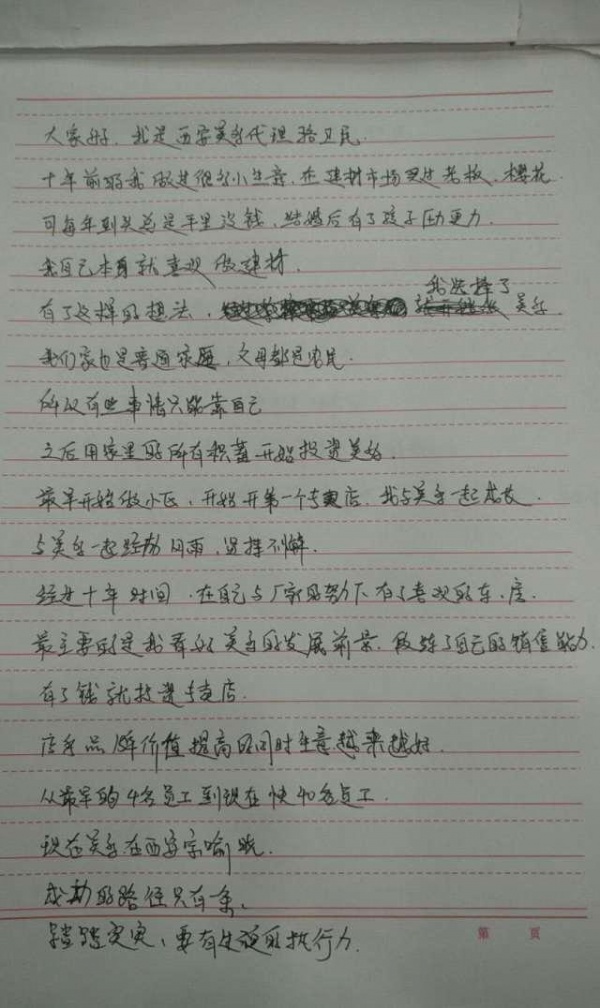 大家好,我是西安美多代理路卫民
十年前的我做过很多小生意,在建材市场卖过老板、樱花
可每年到头总是手里没钱,结婚后有了孩子压力更力
我自己本身就喜欢做建材,
有了这样的想法,我选择了美多
我们家也是普通家庭,父母都是农民
所以有些事情只能靠自己
之后用家里的所有积蓄开始投资美多.
最早开始做小区,开始开第一个专卖店,我与美多一起成长,
与美多一起经历风雨,坚持不懈.
经过十年时间,在自己与厂家的努力下有了喜欢的车,房
最主要的是我看好美多的发展前景,锻炼了自己的销售能力
有了钱就投资专卖店
店多品牌价值提高的同时生意越来越好.
从最早的4名员工到现在快40名员工.
现在美多在西安家喻晓.
成功的路径只有一条,
踏踏实实,要有 的执行力.
第 頁